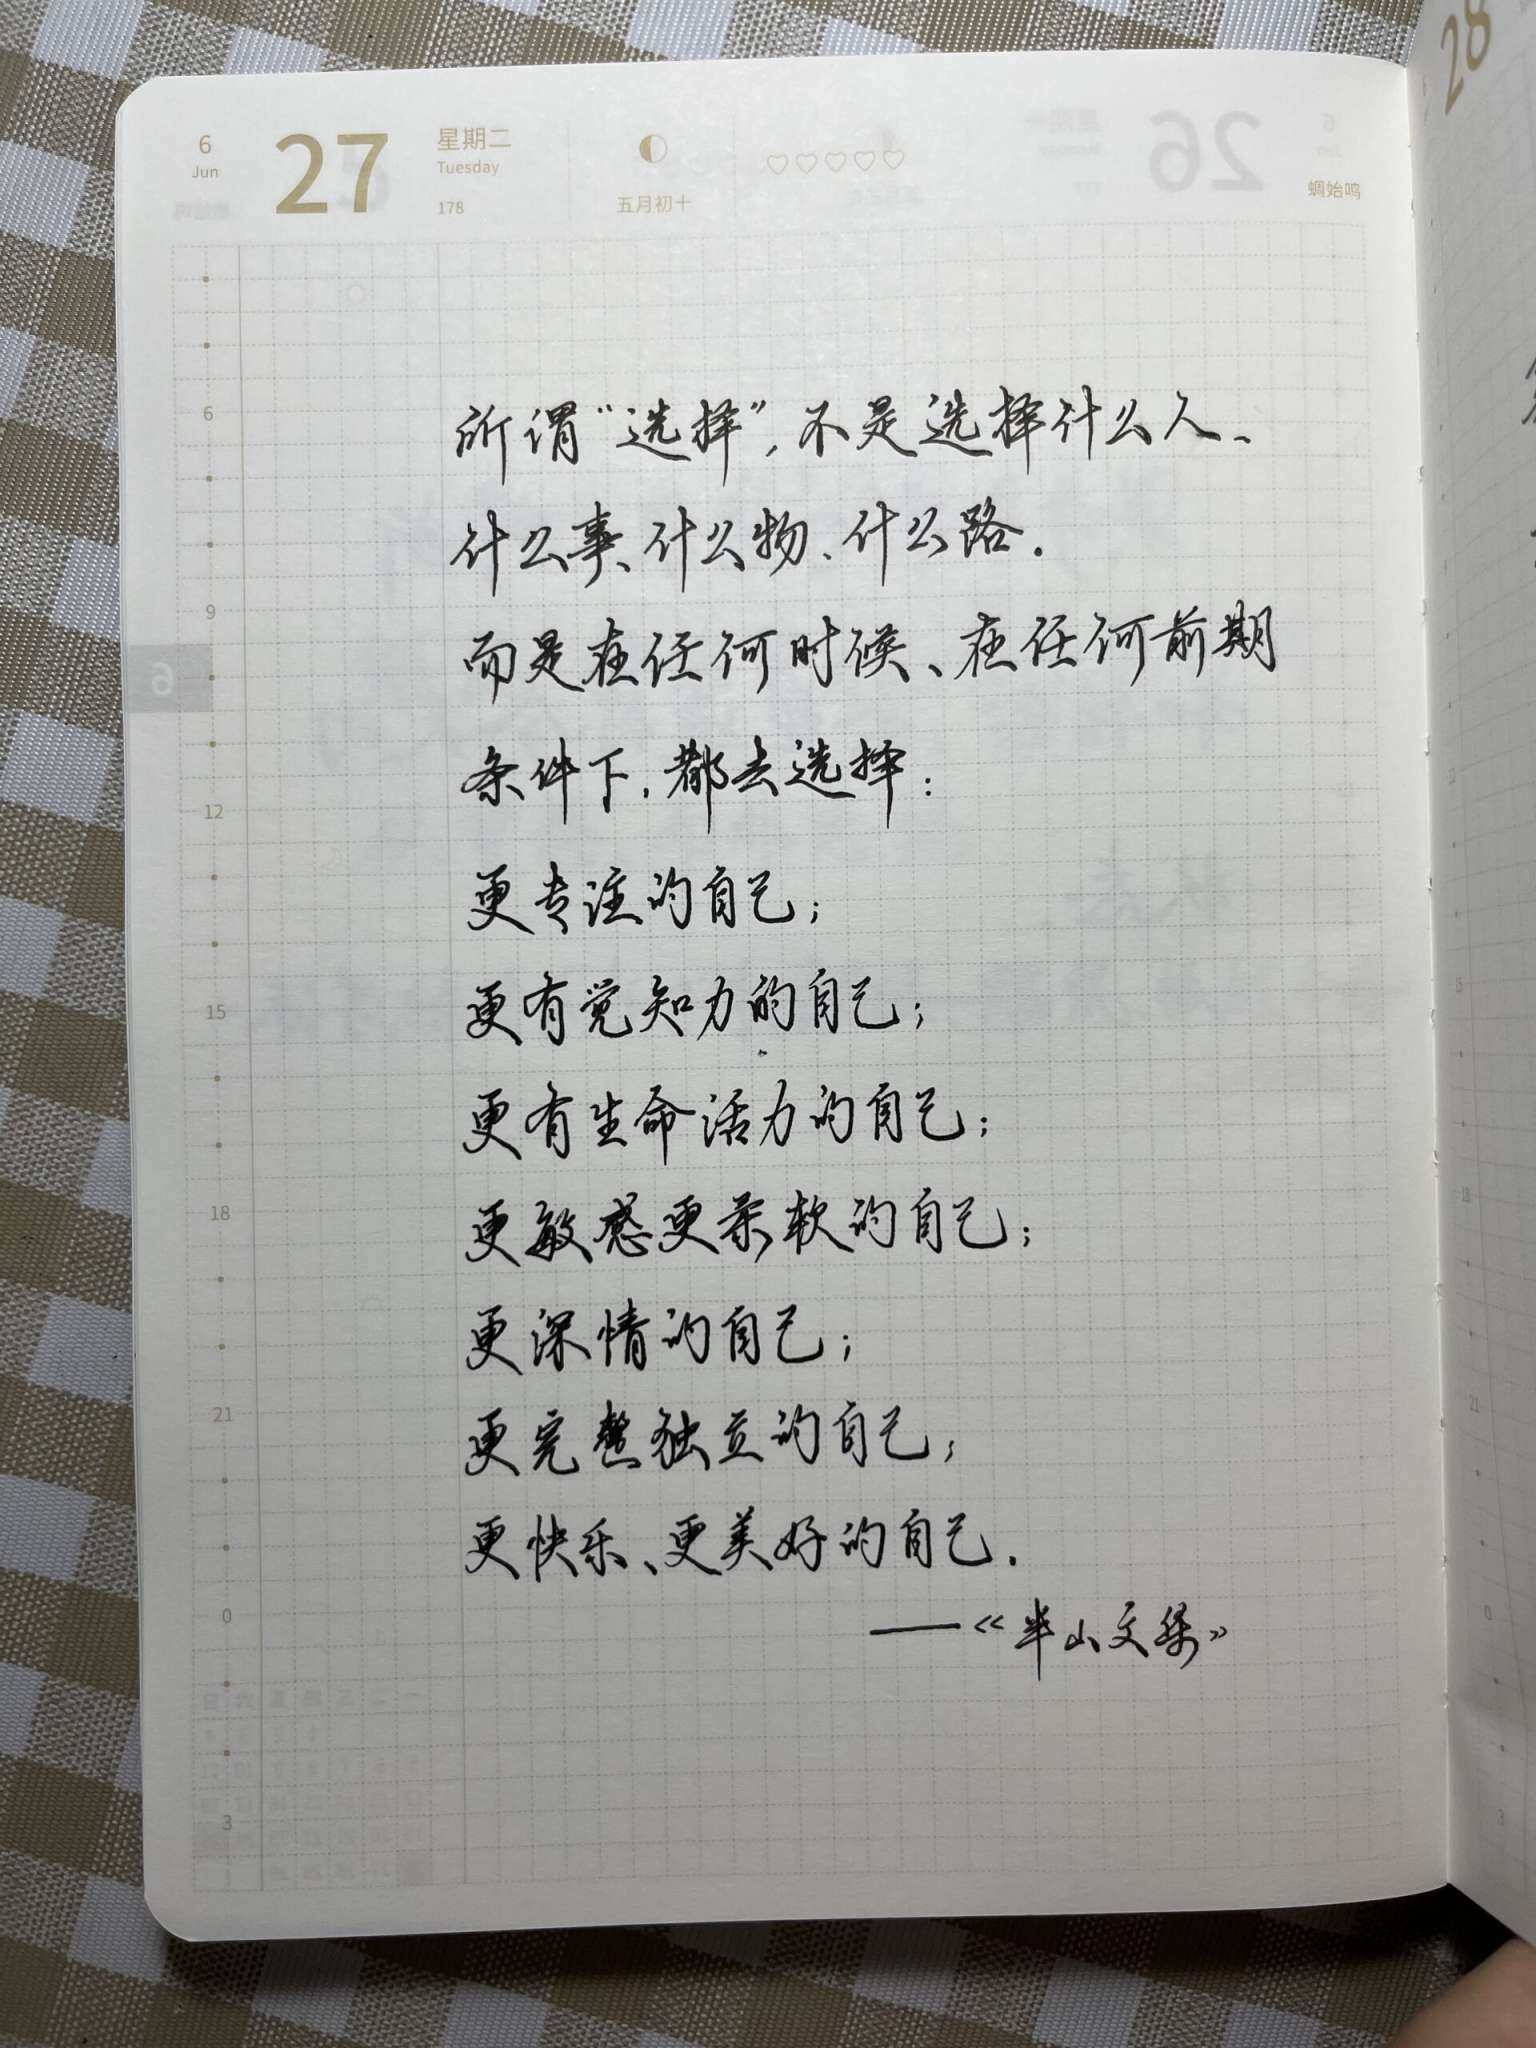 6
Jun
27
星期二
Tuesday
178
五月初十
蜩始鸣
28
所谓“选择”，不是选择什么人、
什么事、什么物、什么路.
而是在任何时候、在任何前期
条件下，都去选择：
更专注的自己；
更有觉知力的自己；
更有生命活力的自己；
更敏感更柔软的自己；
更深情的自己；
更完整独立的自己；
更快乐、更美好的自己.
——《半山文集》
6
9
12
15
18
21
0
3